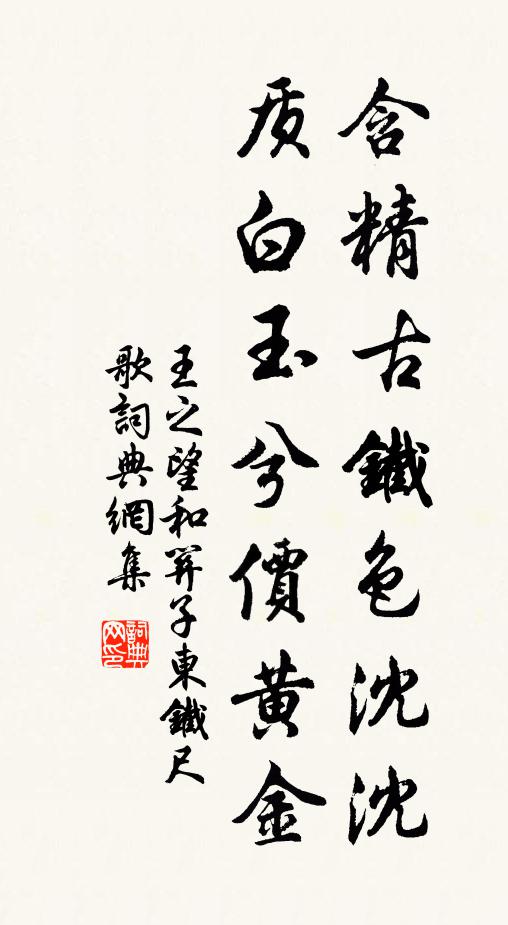 含精古鐵色沈沈
质白玉兮價黃金
王之望和羿子東鐵尺
歌詞典網集
詞典
网印